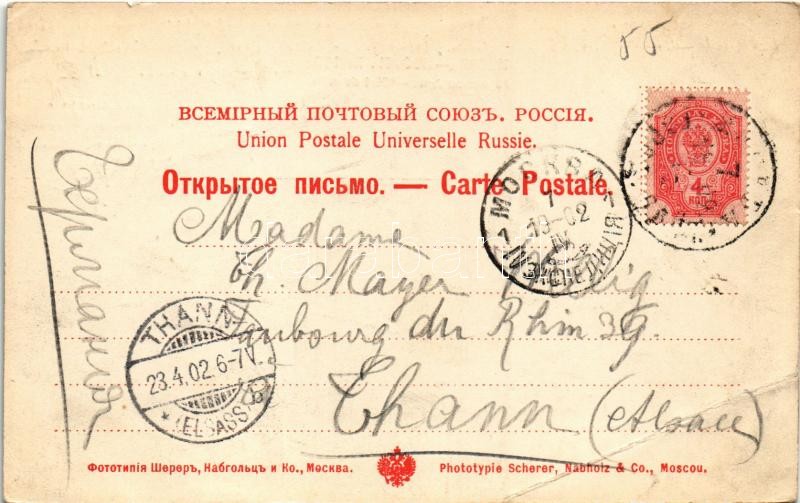 55
ВСЕМІРНЫЙ ПОЧТОВЫЙ СОЮЗЪ. РОССІЯ.
Union Postale Universelle Russie.
Открытое письмо. — Carte Postale.
4
КОП
МОСКВА
1
10-02
IV
ЭКСПЕДИЦІЯ
Германія
Madame
Th. Mayer
Faubourg du Rhin 39
Thann (Alsace)
THANN
23.4.02 6-7V.
* (ELSASS)
Фототипія Шереръ, Набгольцъ и Ко., Москва.
Phototypie Scherer, Nabholz & Co., Moscou.